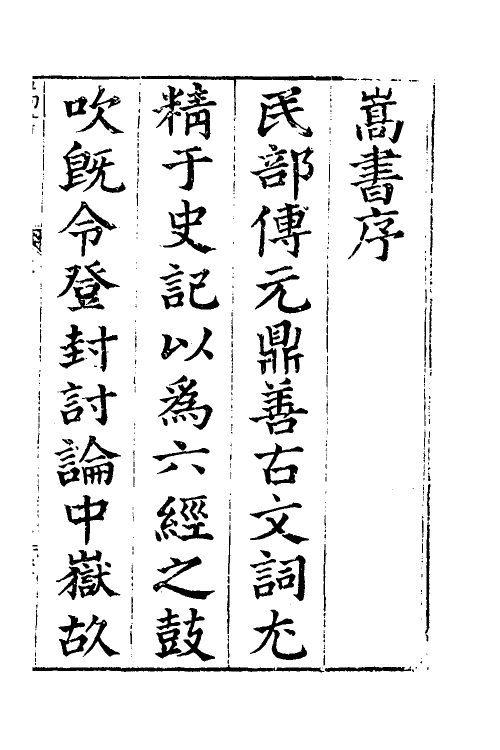 嵩書序
民部傅元鼎善古文詞尤
精于史記以爲六經之鼓
吹旣令登封討論中嶽故